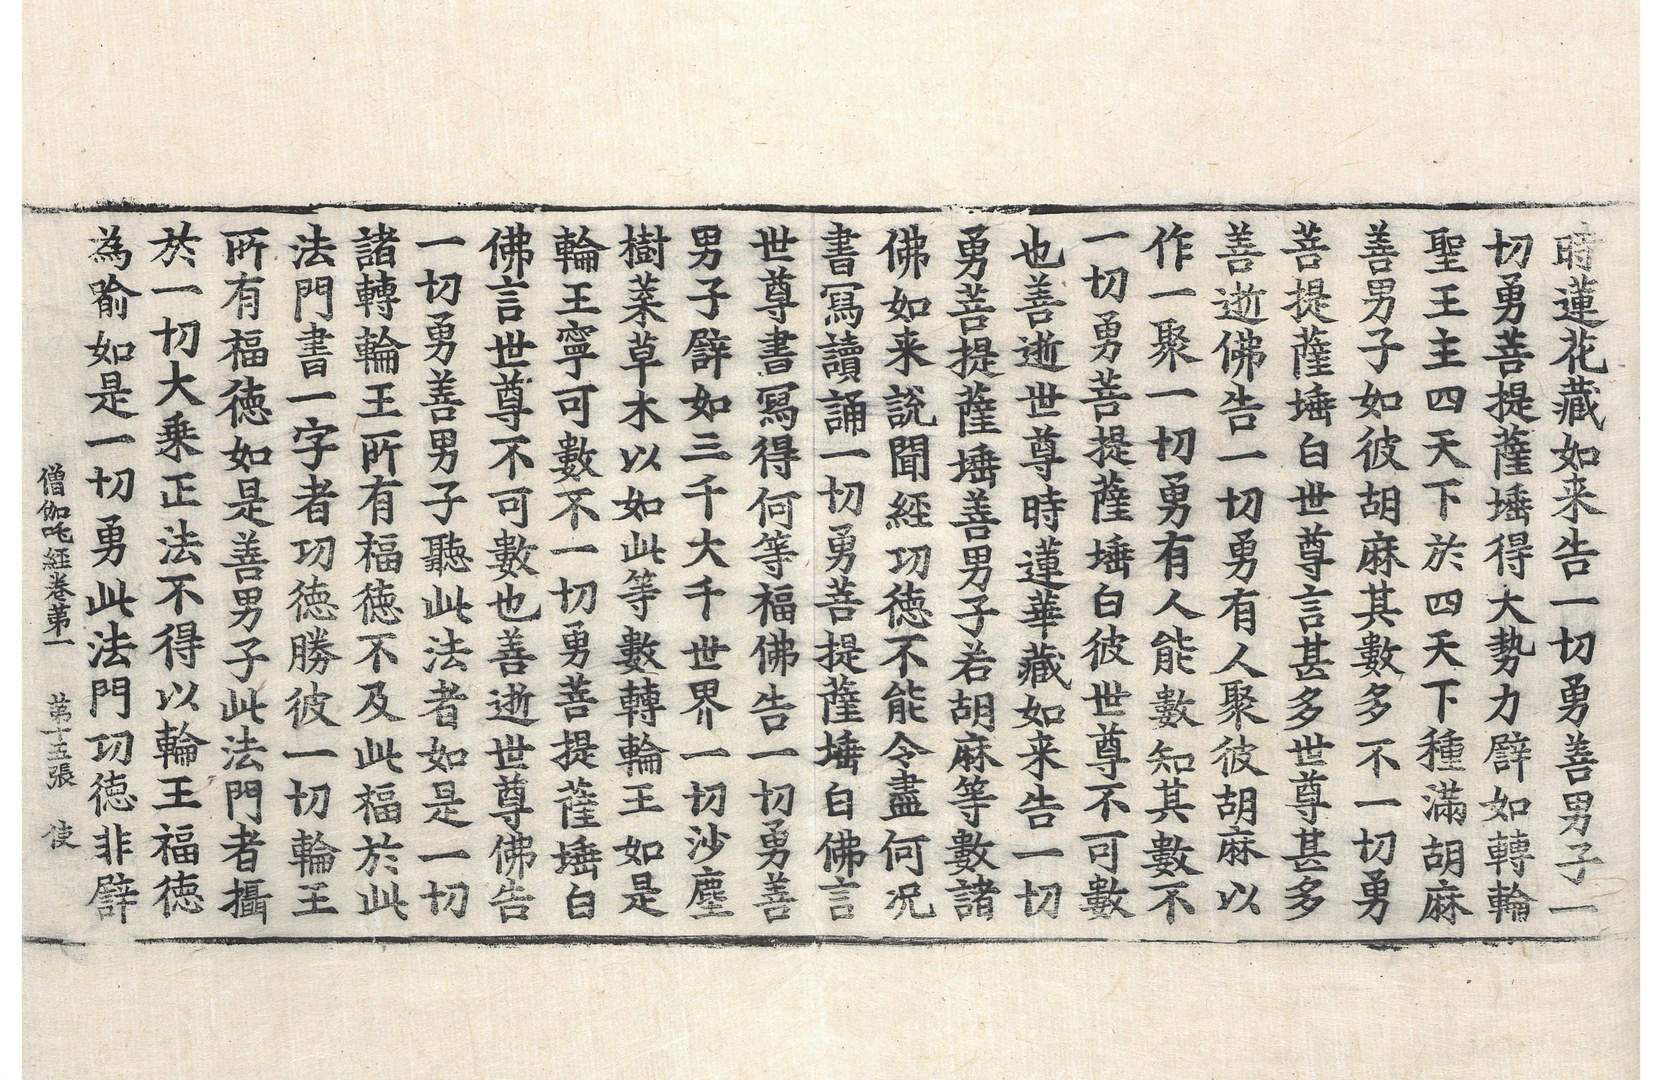 時蓮花藏如来告一切勇善男子一
切勇菩提薩埵得大勢力譬如轉輪
聖王主四天下於四天下種滿胡麻
善男子如彼胡麻其數多不一切勇
菩提薩埵白世尊言甚多世尊甚多
善逝佛告一切勇有人聚彼胡麻以
作一聚一切勇有人能數知其數不
一切勇菩提薩埵白彼世尊不可數
也善逝世尊時蓮華藏如来告一切
勇菩提薩埵善男子若胡麻等數諸
佛如来說聞經功德不能令盡何況
書寫讀誦一切勇菩提薩埵白佛言
世尊書寫得何等福佛告一切勇善
男子譬如三千大千世界一切沙塵
樹葉草木以如此等數轉輪王如是
輪王寧可數不一切勇菩提薩埵白
佛言世尊不可數也善逝世尊佛告
一切勇善男子聽此法者如是一切
諸轉輪王所有福德不及此福於此
法門書一字者功德勝彼一切輪王
所有福德如是善男子此法門者攝
於一切大乗正法不得以輪王福德
為喻如是一切勇此法門功德非譬
僧伽吒經卷第一　第十五張　使